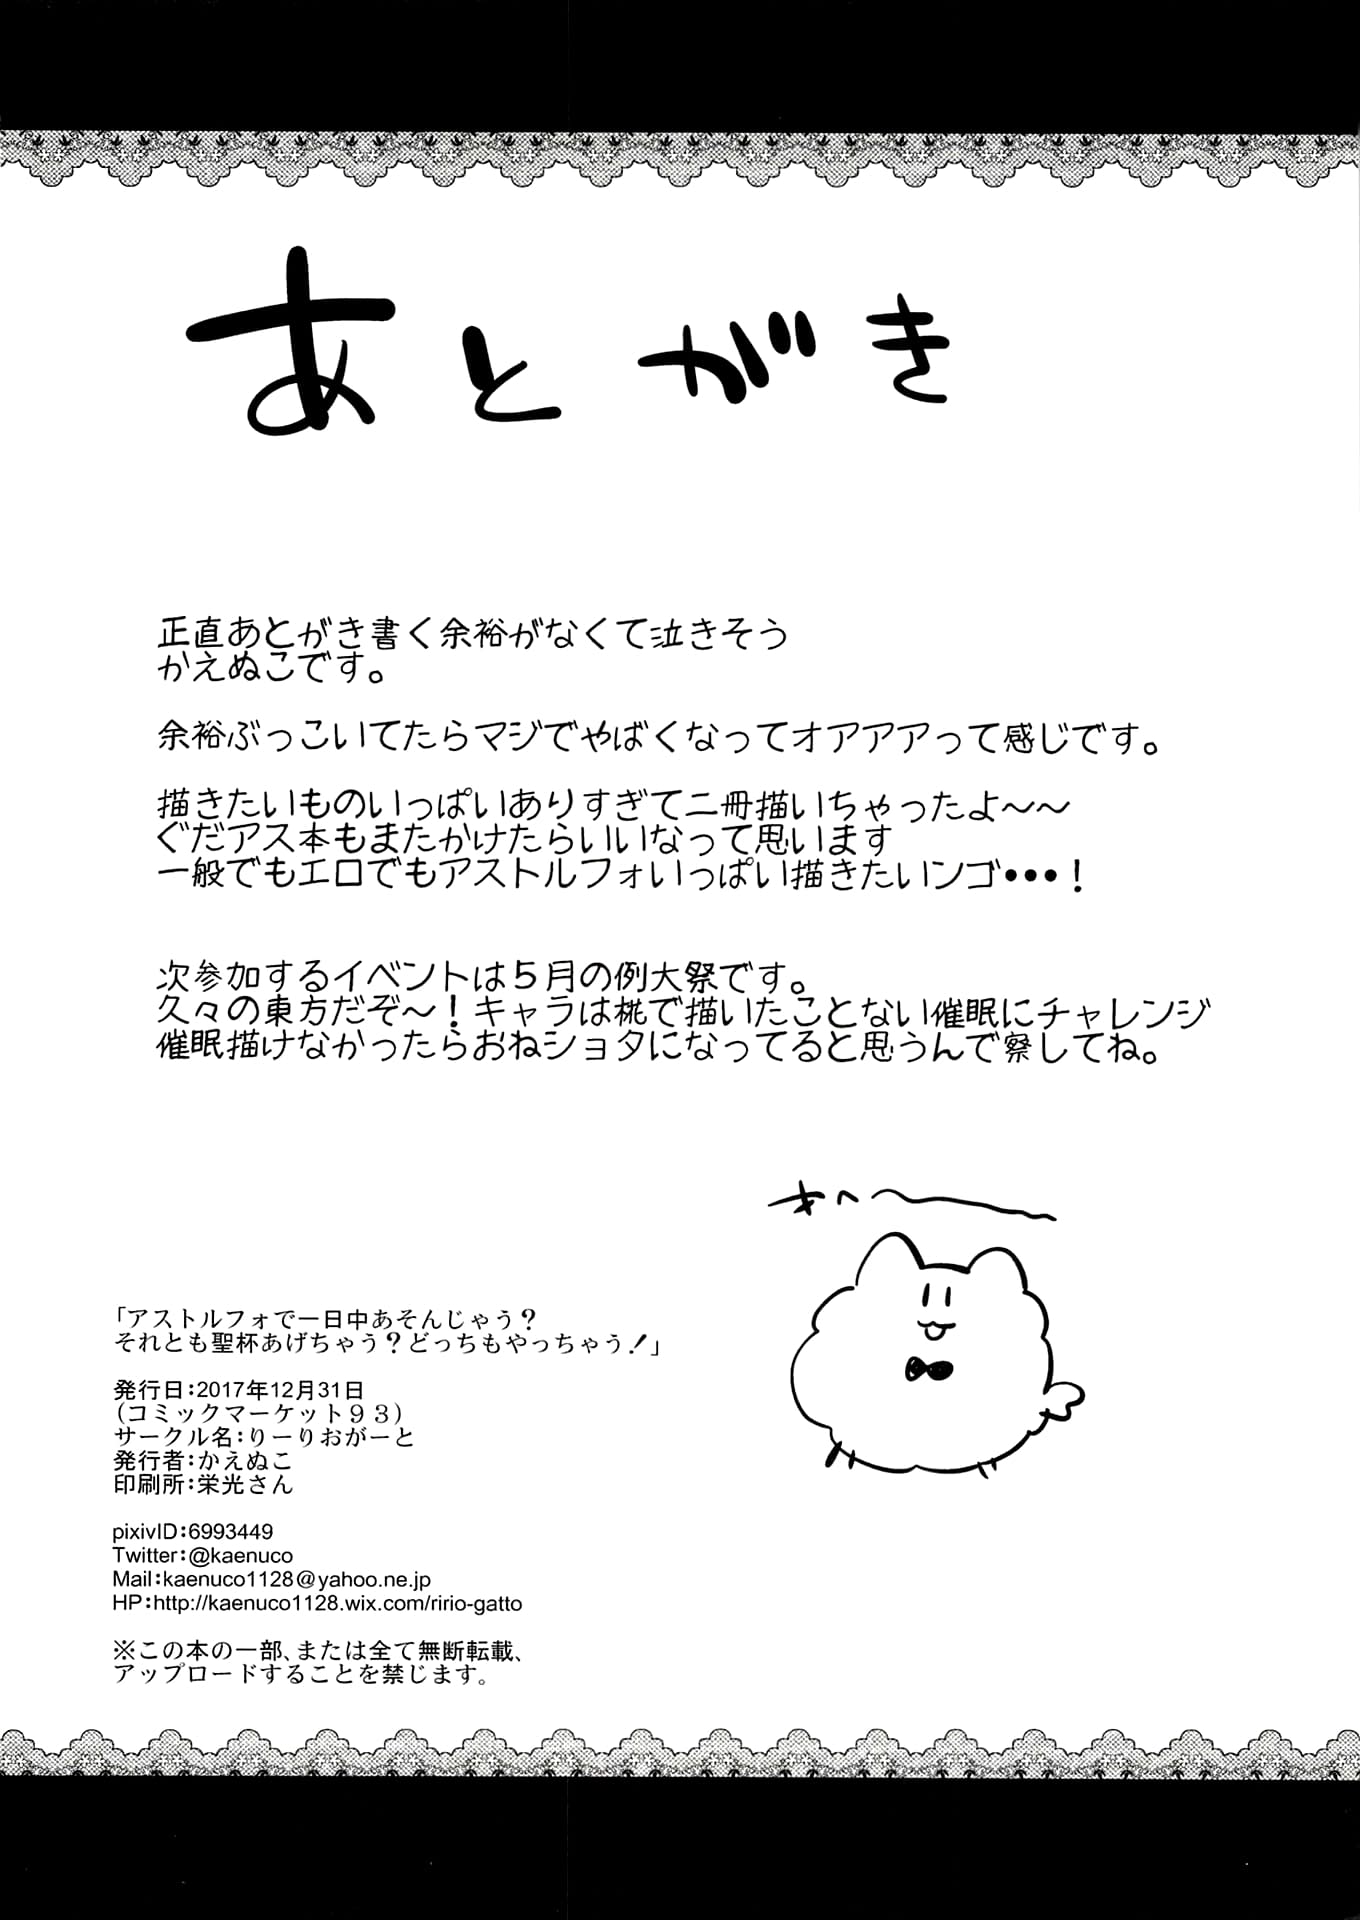 あとがき
正直あとがき書く余裕がなくて泣きそう
かえぬこです。
余裕ぶっこいてたらマジでやばくなってオアアアって感じです。
描きたいものいっぱいありすぎて二冊描いちゃったよ～～
ぐだアス本もまたかけたらいいなって思います
一般でもエロでもアストルフォいっぱい描きたいンゴ・・・！
次参加するイベントは５月の例大祭です。
久々の東方だぞ～！キャラは椛で描いたことない催眠にチャレンジ
催眠描けなかったらおねショタになってると思うんで察してね。
あへ～
「アストルフォで一日中あそんじゃう？
それとも聖杯あげちゃう？どっちもやっちゃう！」
発行日：2017年12月31日
（コミックマーケット９３）
サークル名：りーりおがーと
発行者：かえぬこ
印刷所：栄光さん
pixivID：6993449
Twitter：@kaenuco
Mail：kaenuco1128@yahoo.ne.jp
HP：http://kaenuco1128.wix.com/ririo-gatto
※この本の一部、または全て無断転載、
アップロードすることを禁じます。